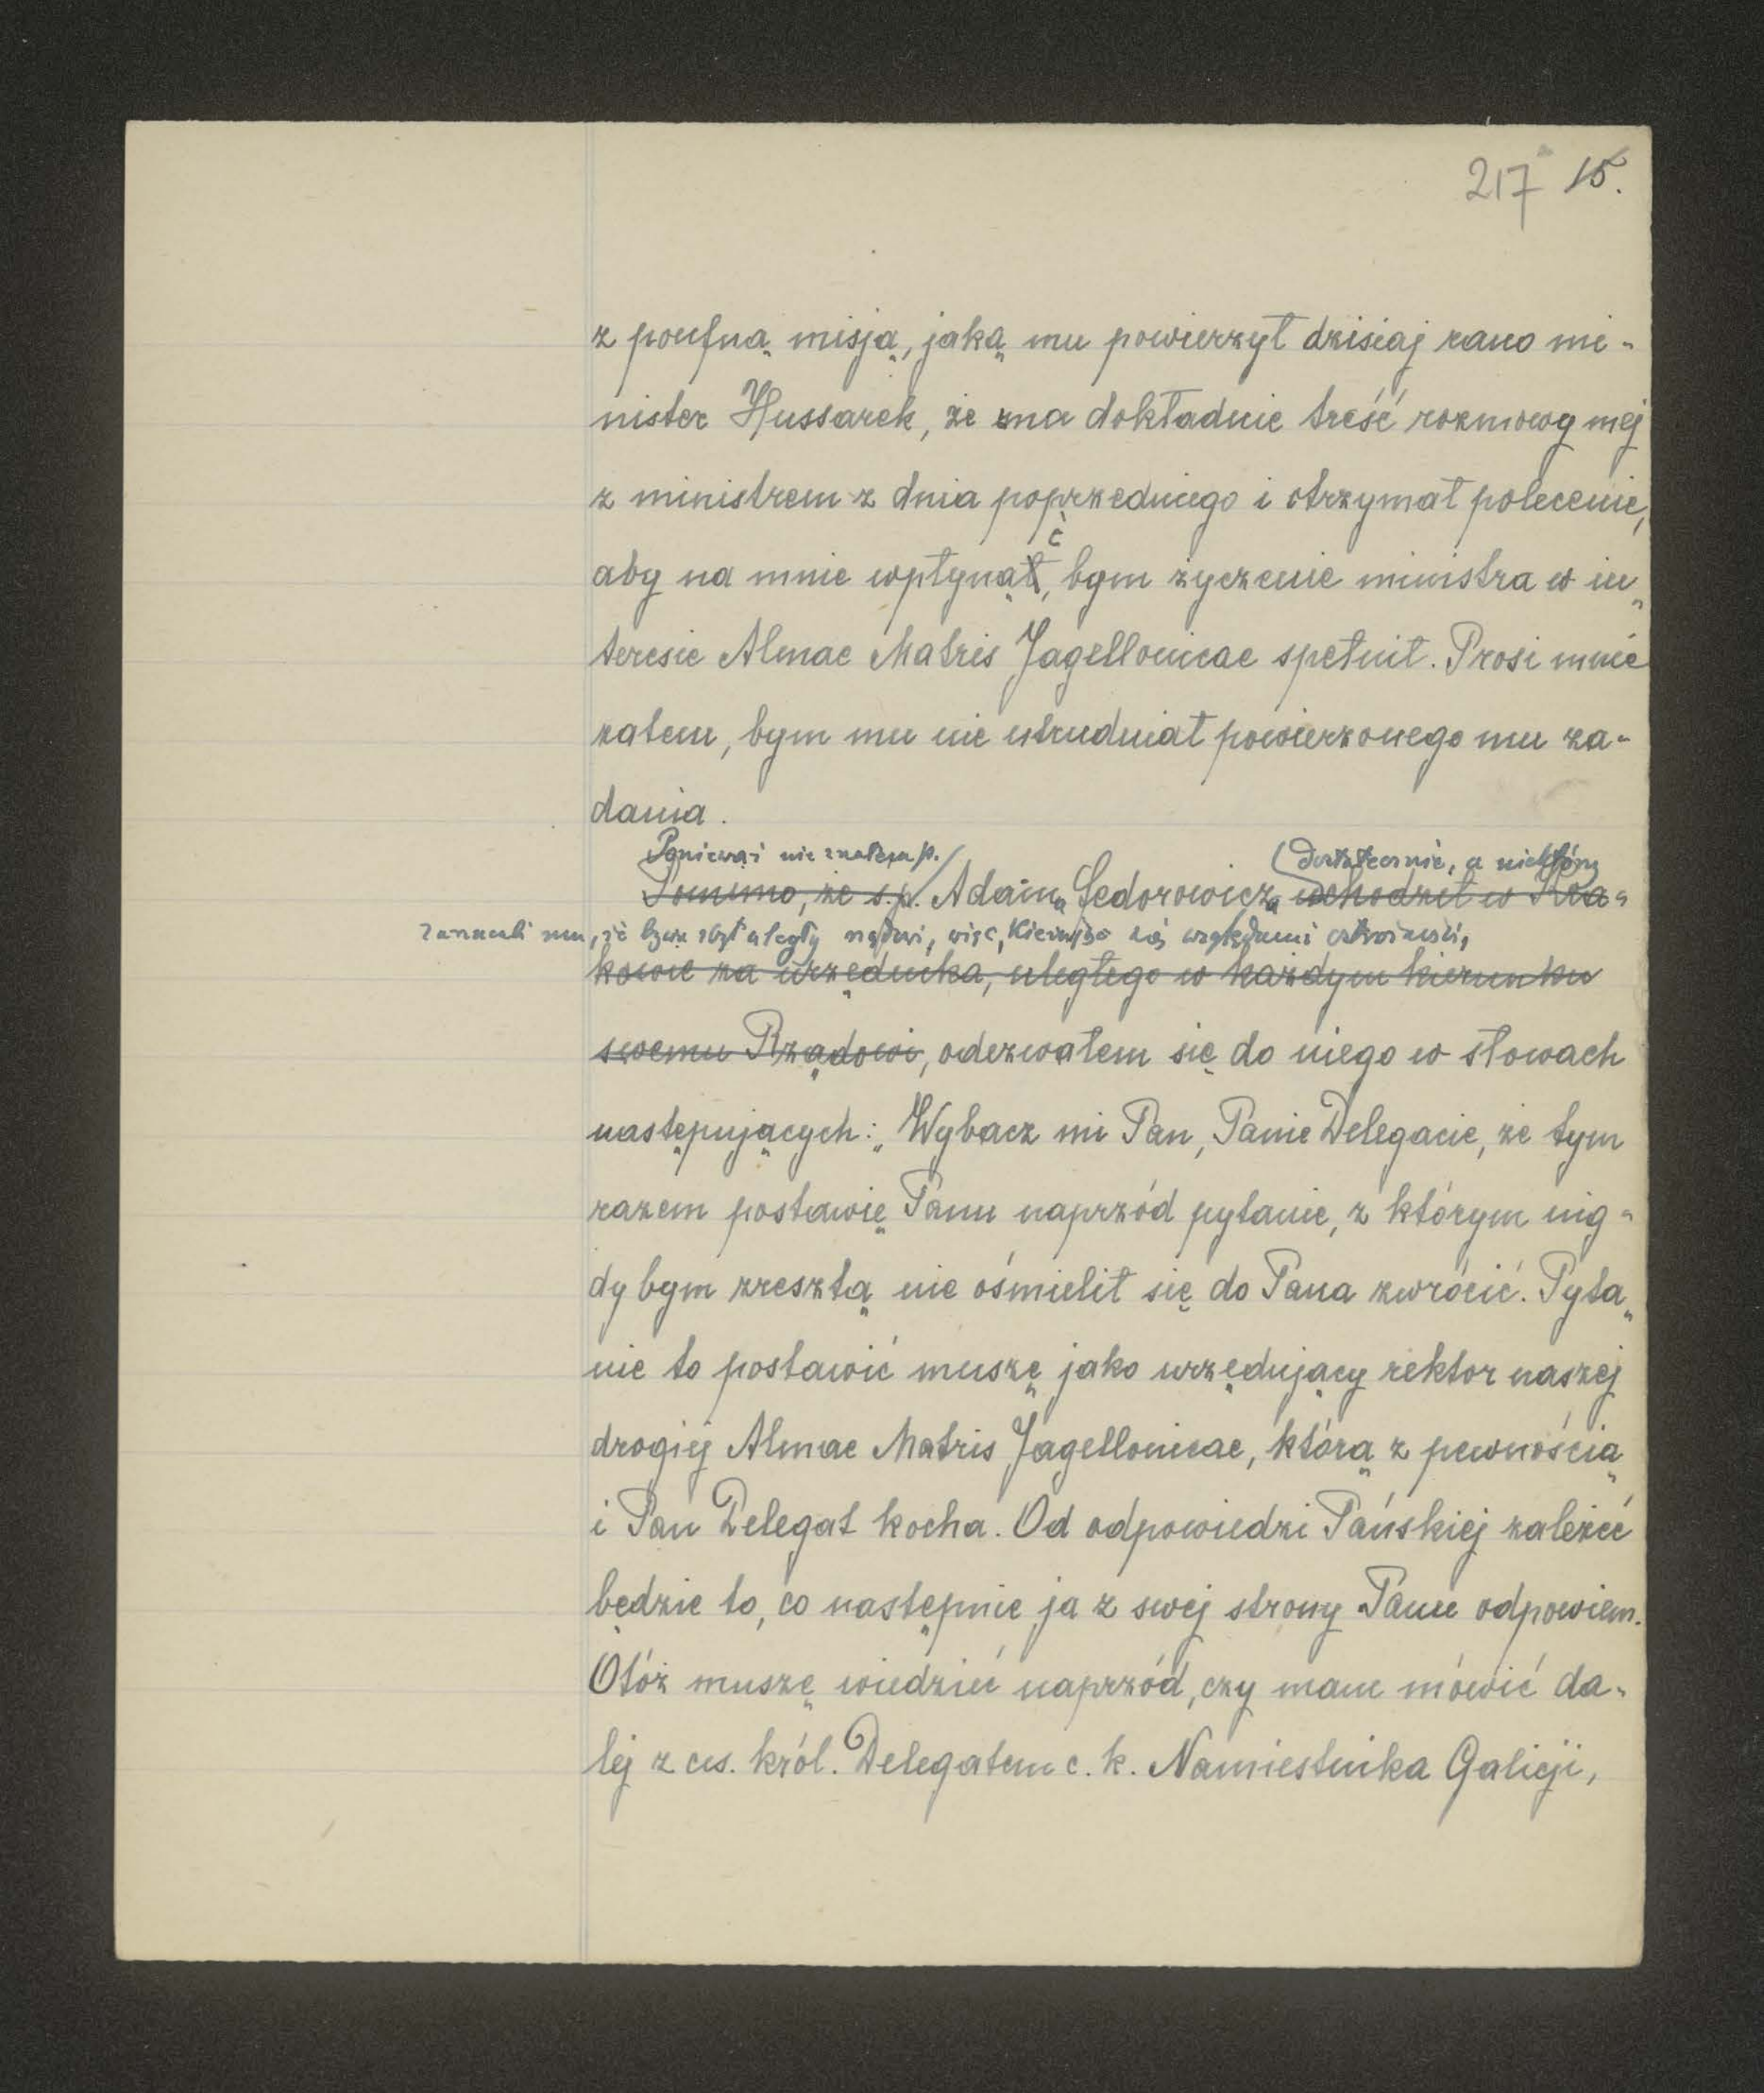 217 15.
z poufną misją, jaką mu powierzył dzisiaj rano mi-
nister Hussarek, że zna dokładnie treść rozmowy mej
z ministrem z dnia poprzedniego i otrzymał polecenie,
ć
aby na mnie wpłynął, bym życzenie ministra w in„
teresie Almae Matris Jagellonicae spełnił. Prosi mnie
zatem, bym mu nie utrudniał powierzonego mu za-
dania.
Ponieważ nie znałem p. dostatecznie, a niektórzy
Pomimo, że s.p. Adama Fedorowicza uchodził w Kra-
zarzucali mu, że bywa zbyt uległy rządowi, więc, kierując się względami ostrożności,
kowie za urzędnika, uległego w każdym kierunku
swemu Rządowi, odezwałem się do niego w słowach
następujących: „Wybacz mi Pan, Panie Delegacie, że tym
razem postawię Panu naprzód pytanie, z którym nig-
dy bym zresztą nie ośmielił się do Pana zwrócić. Pyta„
nie to postawić muszę jako urzędujący rektor naszej
drogiej Almae Matris Jagellonicae, którą z pewnością
i Pan Delegat kocha. Od odpowiedzi Pańskiej zależeć
będzie to, co następnie ja z swej strony Panu odpowiem.
Otóż muszę wiedzieć naprzód, czy mam mówić da-
lej z ces. król. Delegatem c. k. Namiestnika Galicji,